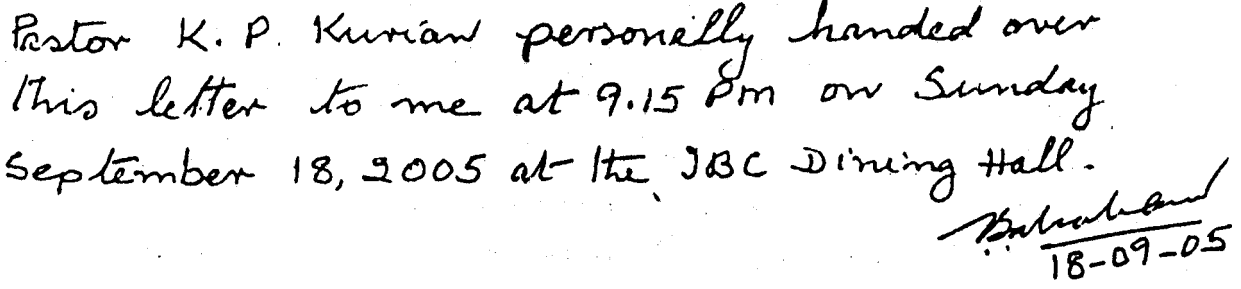 Pastor K. P. Kurian personally handed over
this letter to me at 9.15 Pm on Sunday
September 18, 2005 at the IBC Dining Hall.
18-09-05